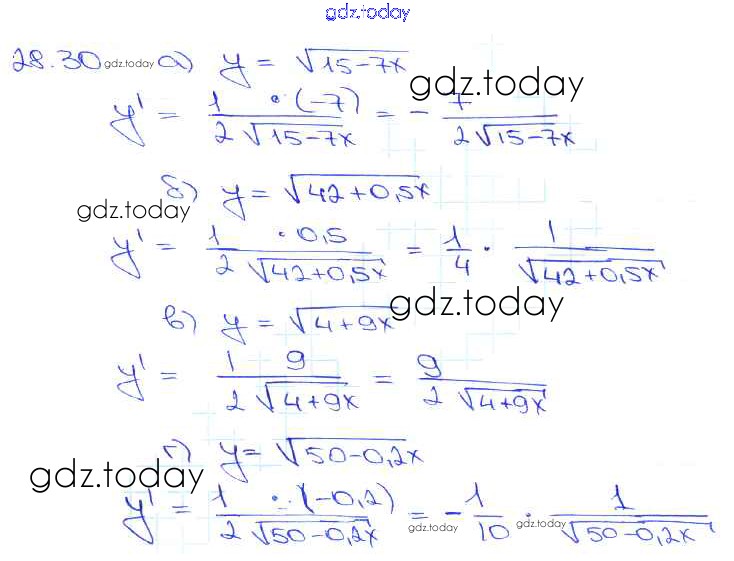 gdz.today
28.30 gdz.today а) y = √(15-7x)
gdz.today
y' = 1 · (-7) / 2√(15-7x) = - 7 / 2√(15-7x)
б) y = √(42+0,5x)
gdz.today
y' = 1 · 0,5 / 2√(42+0,5x) = 1/4 · 1/√(42+0,5x)
в) y = √(4+9x)
gdz.today
y' = 1 9 / 2√(4+9x) = 9 / 2√(4+9x)
г) y = √(50-0,2x)
gdz.today
y' = 1 · (-0,2) / 2√(50-0,2x) = - 1/10 · 1/√(50-0,2x)
gdz.today gdz.today gdz.today